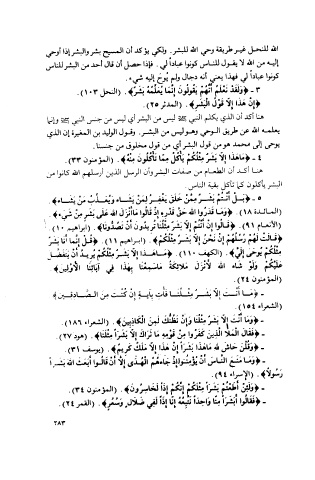 الله للنحل غير طريقة وحي الله للبشر. ولكي يؤكد أن المسيح بشر والبشر إذا أوحي
إليه من الله لا يقول للناس كونوا عباداً لي. فإذا حصل أن قال أحد من البشر للناس
كونوا عباداً لي فهذا يعني أنه دجال ولم يُوحَ إليه شيء.
٣ ـ ﴿وَلَقَدْ نَعْلَمُ أَنَّهُمْ يَقُولُونَ إِنَّمَا يُعَلِّمُهُ بَشَرٌ﴾. (النحل ١٠٣).
﴿إِنْ هَذَا إِلَّا قَوْلُ الْبَشَرِ﴾. (المدثر ٢٥).
هنا أكد أن الذي يكلم النبي ﷺ ليس من البشر أي ليس من جنس النبي ﷺ وإنما
يعلمه الله عن طريق الوحي وهو ليس من البشر. وقول الوليد بن المغيرة إن الذي
يوحى إلى محمد هو من قول البشر أي من قول مخلوق من جنسنا.
٤ ـ ﴿مَا هَذَا إِلَّا بَشَرٌ مِثْلُكُمْ يَأْكُلُ مِمَّا تَأْكُلُونَ مِنْهُ﴾. (المؤمنون ٣٣).
هنا أكد أن الطعام من صفات البشر وأن الرسل الذين أرسلهم الله كانوا من
البشر يأكلون كما تأكل بقية الناس.
٥ ـ ﴿بَلْ أَنْتُمْ بَشَرٌ مِمَّنْ خَلَقَ يَغْفِرُ لِمَنْ يَشَاءُ وَيُعَذِّبُ مَنْ يَشَاءُ﴾.
(المائدة ١٨). ﴿وَمَا قَدَرُوا اللهَ حَقَّ قَدْرِهِ إِذْ قَالُوا مَا أَنْزَلَ اللهُ عَلَى بَشَرٍ مِنْ شَيْءٍ﴾.
(الأنعام ٩١). ﴿قَالُوا إِنْ أَنْتُمْ إِلَّا بَشَرٌ مِثْلُنَا تُرِيدُونَ أَنْ تَصُدُّونَا﴾. (إبراهيم ١٠).
﴿قَالَتْ لَهُمْ رُسُلُهُمْ إِنْ نَحْنُ إِلَّا بَشَرٌ مِثْلُكُمْ﴾. (إبراهيم ١١). ﴿قُلْ إِنَّمَا أَنَا بَشَرٌ
مِثْلُكُمْ يُوحَى إِلَيَّ﴾. (الكهف ١١٠). ﴿مَا هَذَا إِلَّا بَشَرٌ مِثْلُكُمْ يُرِيدُ أَنْ يَتَفَضَّلَ
عَلَيْكُمْ وَلَوْ شَاءَ اللهُ لَأَنْزَلَ مَلَائِكَةً مَا سَمِعْنَا بِهَذَا فِي آبَائِنَا الْأَوَّلِينَ﴾
(المؤمنون ٢٤).
ـ ﴿مَا أَنْتَ إِلَّا بَشَرٌ مِثْلُنَا فَأْتِ بِآيَةٍ إِنْ كُنْتَ مِنَ الصَّادِقِينَ﴾
(الشعراء ١٥٤)
ـ ﴿وَمَا أَنْتَ إِلَّا بَشَرٌ مِثْلُنَا وَإِنْ نَظُنُّكَ لَمِنَ الْكَاذِبِينَ﴾. (الشعراء ١٨٦).
ـ ﴿فَقَالَ الْمَلَأُ الَّذِينَ كَفَرُوا مِنْ قَوْمِهِ مَا نَرَاكَ إِلَّا بَشَراً مِثْلَنَا﴾. (هود ٢٧).
ـ ﴿وَقُلْنَ حَاشَ لله مَا هَذَا بَشَراً إِنْ هَذَا إِلَّا مَلَكٌ كَرِيمٌ﴾. (يوسف ٣١).
ـ ﴿وَمَا مَنَعَ النَّاسَ أَنْ يُؤْمِنُوا إِذْ جَاءَهُمُ الْهُدَى إِلَّا أَنْ قَالُوا أَبَعَثَ اللهُ بَشَراً
رَسُولاً﴾. (الإسراء ٩٤).
ـ ﴿وَلَئِنْ أَطَعْتُمْ بَشَراً مِثْلَكُمْ إِنَّكُمْ إِذاً لَخَاسِرُونَ﴾. (المؤمنون ٣٤).
ـ ﴿فَقَالُوا أَبَشَراً مِنَّا وَاحِداً نَتَّبِعُهُ إِنَّا إِذاً لَفِي ضَلَالٍ وَسُعُرٍ﴾. (القمر ٢٤).
٢٨٣